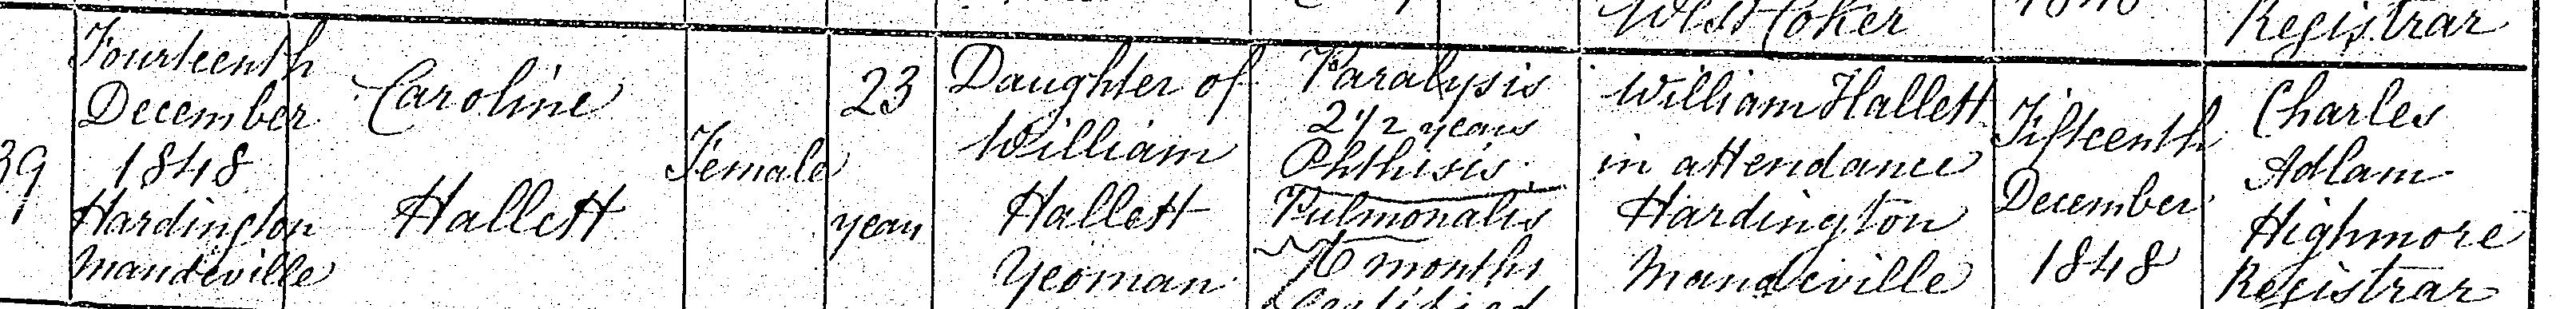 West Coker
1848
Registrar
39
Fourteenth
December
1848
Hardington
Mandeville
Caroline
Hallett
Female
23
years
Daughter of
William
Hallett
Yeoman
Paralysis
2 1/2 years
Phthisis
Pulmonalis
months
Certified
William Hallett
in attendance
Hardington
Mandeville
Fifteenth
December
1848
Charles
Adlam
Highmore
Registrar